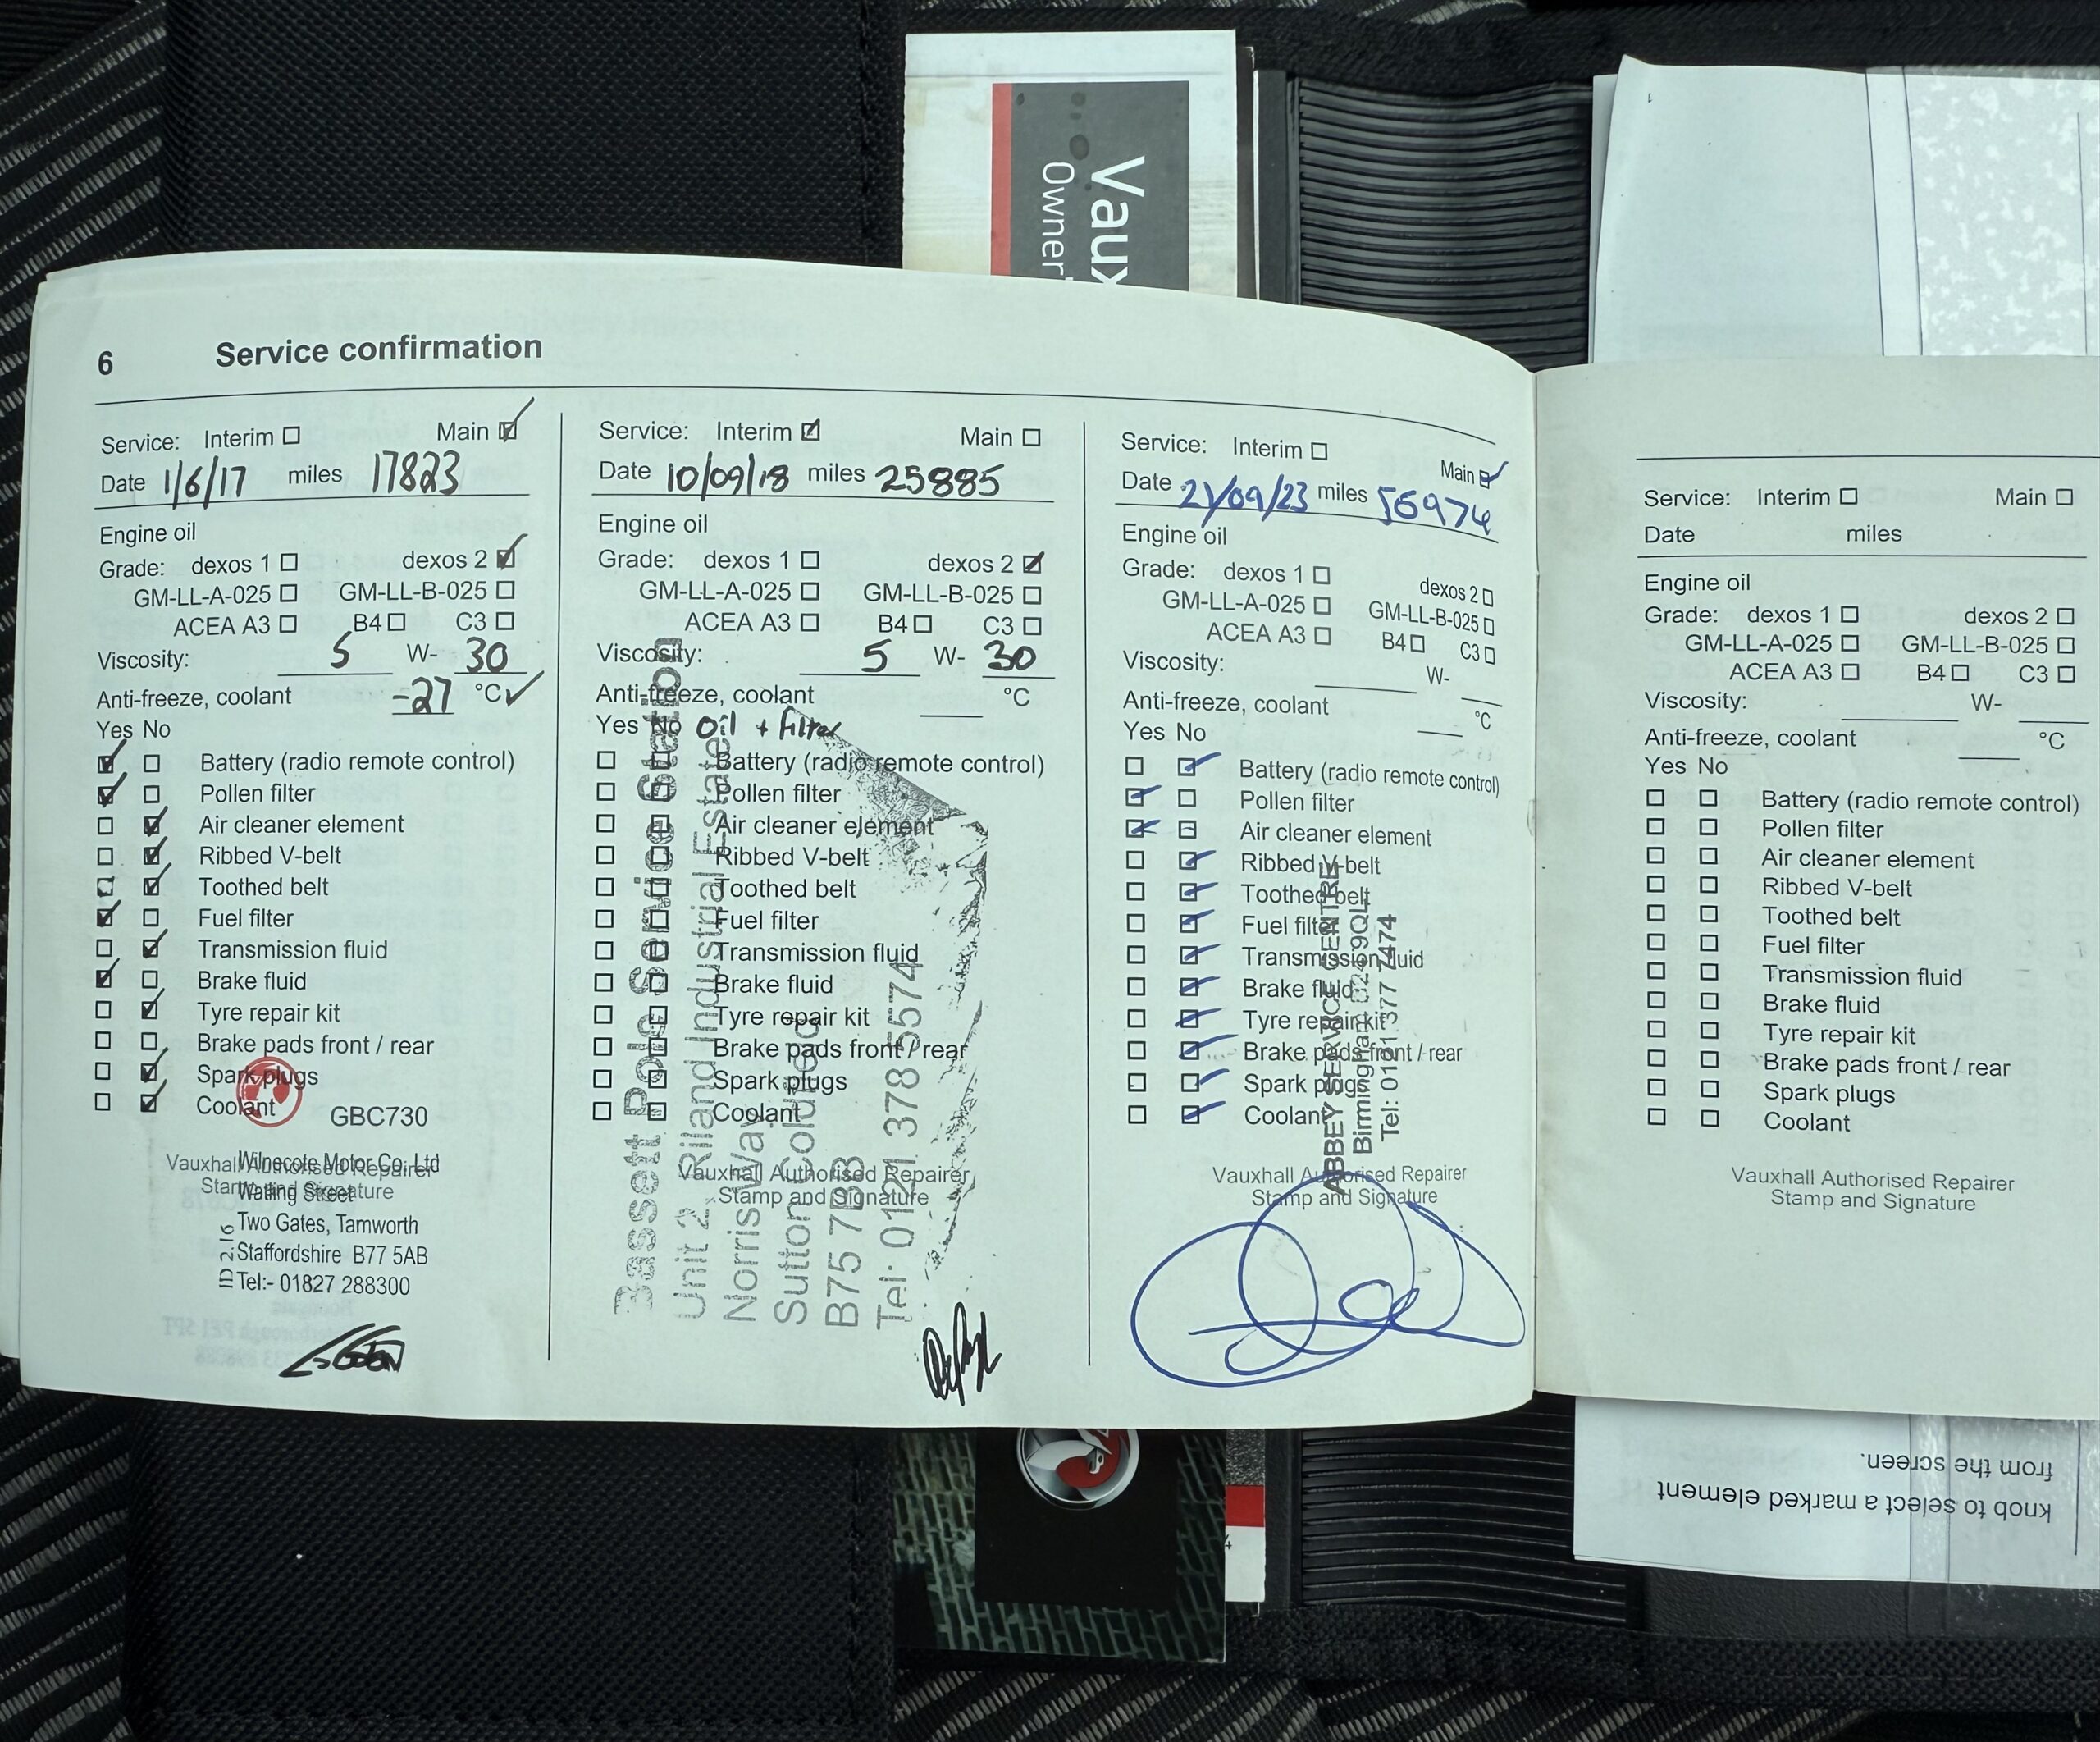 Vaux
Owner'
6 Service confirmation
Service: Interim Main
Date 1/6/17 miles 17823
Engine oil
Grade: dexos 1 dexos 2
GM-LL-A-025 GM-LL-B-025
ACEA A3 B4 C3
Viscosity: 5 W- 30
Anti-freeze, coolant -27 °C
Yes No
Battery (radio remote control)
Pollen filter
Air cleaner element
Ribbed V-belt
Toothed belt
Fuel filter
Transmission fluid
Brake fluid
Tyre repair kit
Brake pads front / rear
Spark plugs
Coolant
GBC730
Vauxhall Authorised Repairer
Stamp and Signature
Wilnecote Motor Co. Ltd
Watling Street
Two Gates, Tamworth
Staffordshire B77 5AB
Tel:- 01827 288300
Service: Interim Main
Date 10/09/18 miles 25885
Engine oil
Grade: dexos 1 dexos 2
GM-LL-A-025 GM-LL-B-025
ACEA A3 B4 C3
Viscosity: 5 W- 30
Anti-freeze, coolant °C
Yes No Oil + Filter
Battery (radio remote control)
Pollen filter
Air cleaner element
Ribbed V-belt
Toothed belt
Fuel filter
Transmission fluid
Brake fluid
Tyre repair kit
Brake pads front / rear
Spark plugs
Coolant
Vauxhall Authorised Repairer
Stamp and Signature
Bassett Pole Service Station
Unit 2, Riland Industrial Estate
Norris Way
Sutton Coldfield
B75 7BB
Tel: 0121 378 5574
Service: Interim Main
Date 21/09/23 miles 56974
Engine oil
Grade: dexos 1 dexos 2
GM-LL-A-025 GM-LL-B-025
ACEA A3 B4 C3
Viscosity: W-
Anti-freeze, coolant °C
Yes No
Battery (radio remote control)
Pollen filter
Air cleaner element
Ribbed V-belt
Toothed belt
Fuel filter
Transmission fluid
Brake fluid
Tyre repair kit
Brake pads front / rear
Spark plugs
Coolant
Vauxhall Authorised Repairer
Stamp and Signature
ABBEY SERVICE CENTRE
Birmingham B24 9QL
Tel: 0121 377 7474
Service: Interim Main
Date miles
Engine oil
Grade: dexos 1 dexos 2
GM-LL-A-025 GM-LL-B-025
ACEA A3 B4 C3
Viscosity: W-
Anti-freeze, coolant °C
Yes No
Battery (radio remote control)
Pollen filter
Air cleaner element
Ribbed V-belt
Toothed belt
Fuel filter
Transmission fluid
Brake fluid
Tyre repair kit
Brake pads front / rear
Spark plugs
Coolant
Vauxhall Authorised Repairer
Stamp and Signature
knob to select a marked element
from the screen.